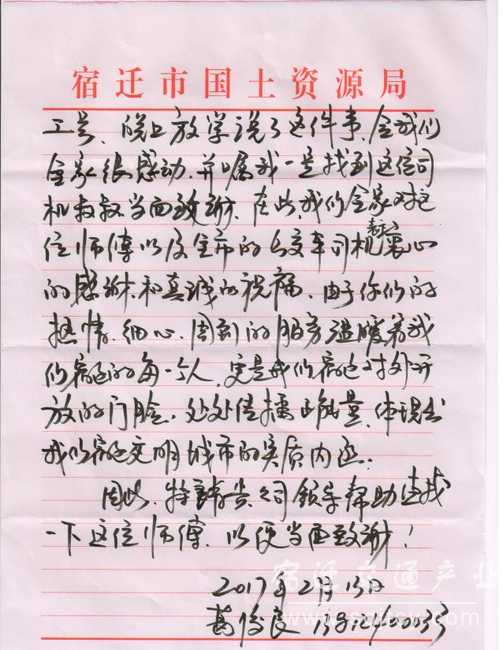 宿迁市国土资源局
工号、晚上放学说了这件事,令我们
全家很感动,并嘱我一定找到这位司
机叔叔当面致谢。在此,我们全家对这
位师傅以及全市的公交车司机表示衷心
的感谢和真诚的祝福,由于你们的
热情、细心、周到的服务温暖着我
们宿迁的每一个人,更是我们宿迁对外开
放的门脸,处处传播正能量,体现出
我们宿迁文明城市的实质内涵。
因此,特请贵公司领导帮助查找
一下这位师傅,以便当面致谢!
2017年2月13日
葛俊良
宿迁交通产业